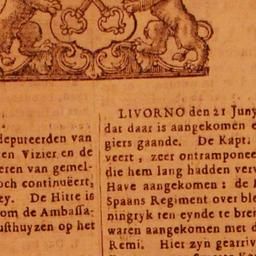 deputeerden van
en Vizier en de
eren van gemel-
och continuëert,
ey. De Hitte is
om de Ambassa-
usthuyzen op het
LIVORNO den 21 Juny
dat daar is aangekomen e
giers gaande. De Kapt.
veert, zeer ontrampone
die hem lang hadden verv
Have aangekomen: de
Spaans Regiment over ble
ningryk ten eynde te bren
waren aangekomen met d
Remi. Hier zyn gearriv